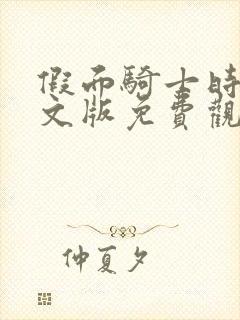 假面騎士時
文版免費觀
仲夏夕